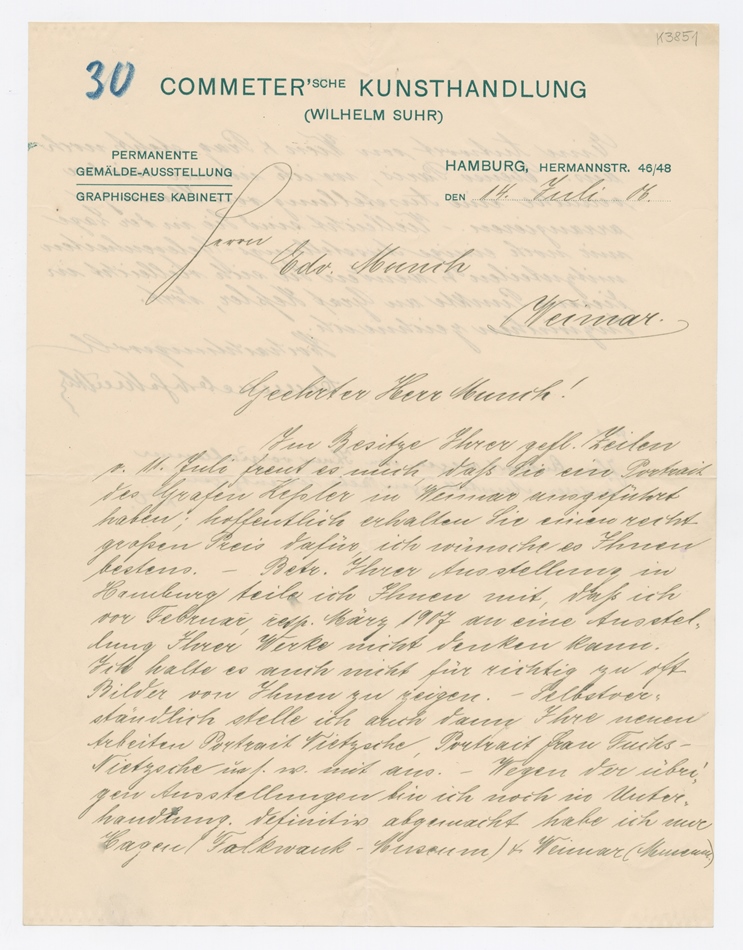 K3851
30
COMMETER'SCHE KUNSTHANDLUNG
(WILHELM SUHR)
PERMANENTE
GEMÄLDE-AUSSTELLUNG
GRAPHISCHES KABINETT
HAMBURG, HERMANNSTR. 46/48
DEN 14. Juli 06.
Herrn
Edv. Munch
Weimar.
Geehrter Herr Munch!
Im Besitze Ihrer gefl. Zeilen
v. 11. Juli freut es mich, daß Sie ein Portrait
des Grafen Keßler in Weimar ausgeführt
haben; hoffentlich erhalten Sie einen recht
großen Preis dafür, ich wünsche es Ihnen
bestens. – Betr. Ihrer Ausstellung in
Hamburg teile ich Ihnen mit, daß ich
vor Februar, resp. März 1907 an eine Ausstel-
lung Ihrer Werke nicht denken kann.
Ich halte es auch nicht für richtig zu oft
Bilder von Ihnen zu zeigen. – Selbstver-
ständlich stelle ich auch dann Ihre neuen
Arbeiten Portrait Nietzsche, Portrait frau Fuchs-
Nietzsche u.s.f. w. mit aus. – Wegen der übri-
gen Ausstellungen bin ich noch in Unter-
handlung. definitiv abgemacht habe ich nur
Hagen (Falkwank-Museum) & Weimar (Museum)